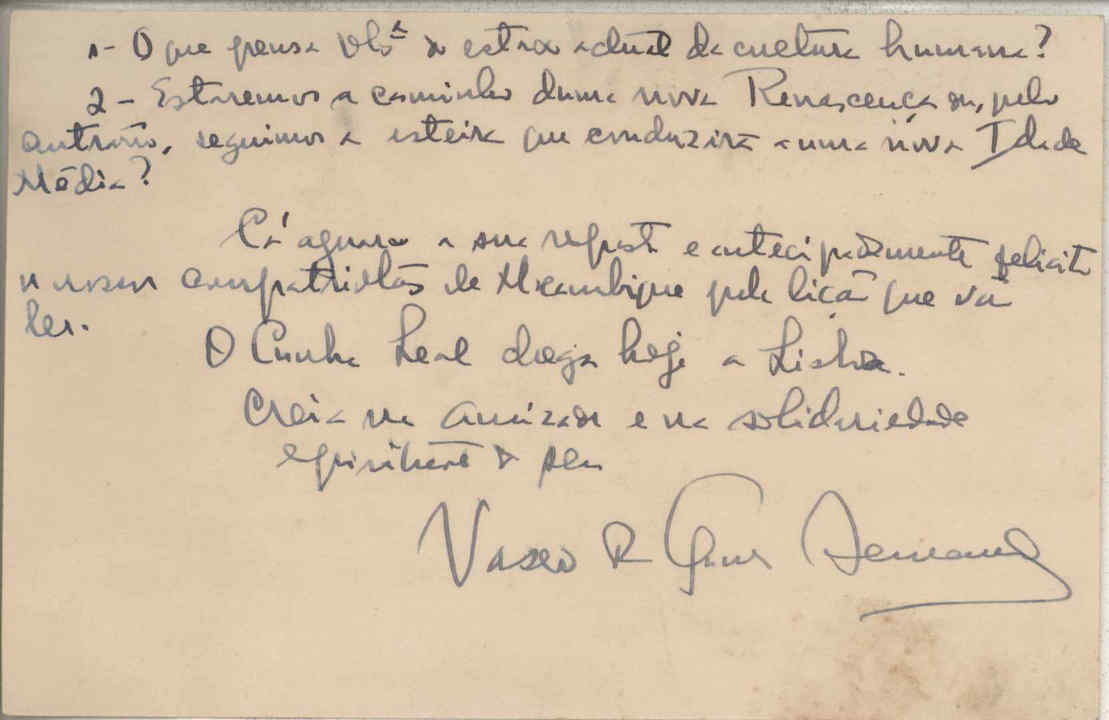 1- O que pensa V. Exª do estado actual da cultura humana?
2 - Estaremos a caminho duma nova Renascença ou, pelo
contrário, seguimos a esteira que conduzirá a uma nova Idade
Média?
Cá aguardo a sua resposta e antecipadamente felicito
os nossos compatriotas de Moçambique pela lição que vão
ler.
O Cunha Leal chega hoje a Lisboa.
Creia na amizade e na solidariedade
espiritual do seu
Vasco da Gama Fernandes